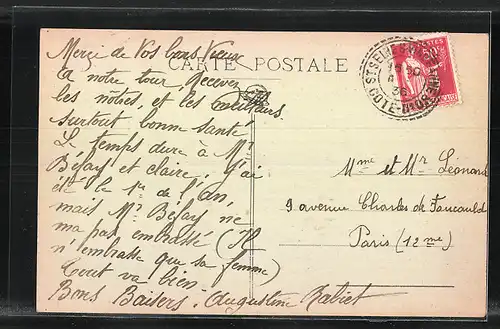 Merçi de Vos bons Vœux
CARTE POSTALE
a notre tour, Recevez
les nôtres, et les meilleurs.
surtout bonne santé
Le temps dure à Mr
Béfay et Claire, j'ai
été le 1er de l'an,
mais Mr Béfay ne
ma pas embrassé (Il
n'embrasse que sa femme)
Tout va bien
Bons Baisers. Augustine Rabiet
Mme et Mr Léonard
9 avenue Charles de Foucauld
Paris (12me)
ST SEINE
COTE-D'OR
POSTES